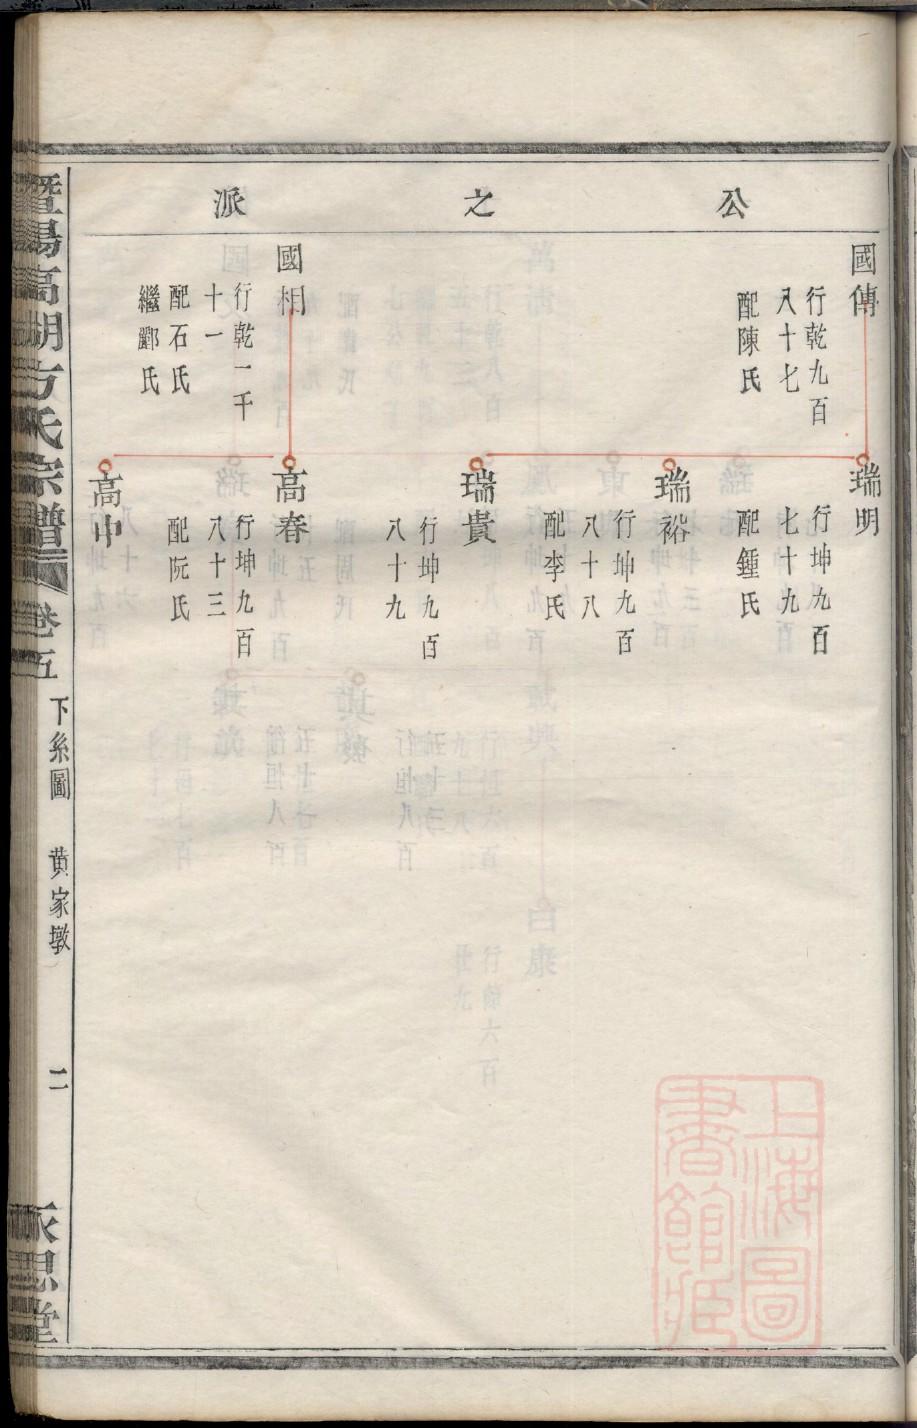 公之派
國傳
行乾九百
八十七
配陳氏
國相
行乾一千
十一
配石氏
繼酈氏
瑞明
行坤九百
七十九
配鍾氏
瑞裕
行坤九百
八十八
配李氏
瑞貴
行坤九百
八十九
高春
行坤九百
八十三
配阮氏
高中
暨陽高湖方氏宗譜
卷五
下系圖
黄家墩
二
永思堂
上海圖書館藏